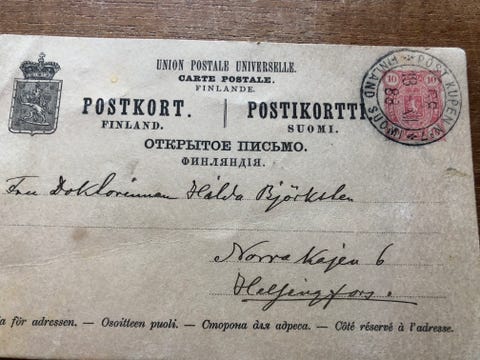 UNION POSTALE UNIVERSELLE.
CARTE POSTALE.
FINLANDE.
POSTKORT. | POSTIKORTTI
FINLAND. SUOMI.
ОТКРЫТОЕ ПИСЬМО.
ФИНЛЯНДІЯ.
10 10
POSTKUPEN No 7
FINLAND SUOMI
88
Fru Doktorinnan Hilda Björksten
Norra Kajen 6
Helsingfors.
a för adressen. — Osoitteen puoli. — Сторона для адреса. — Côté réservé à l'adresse.